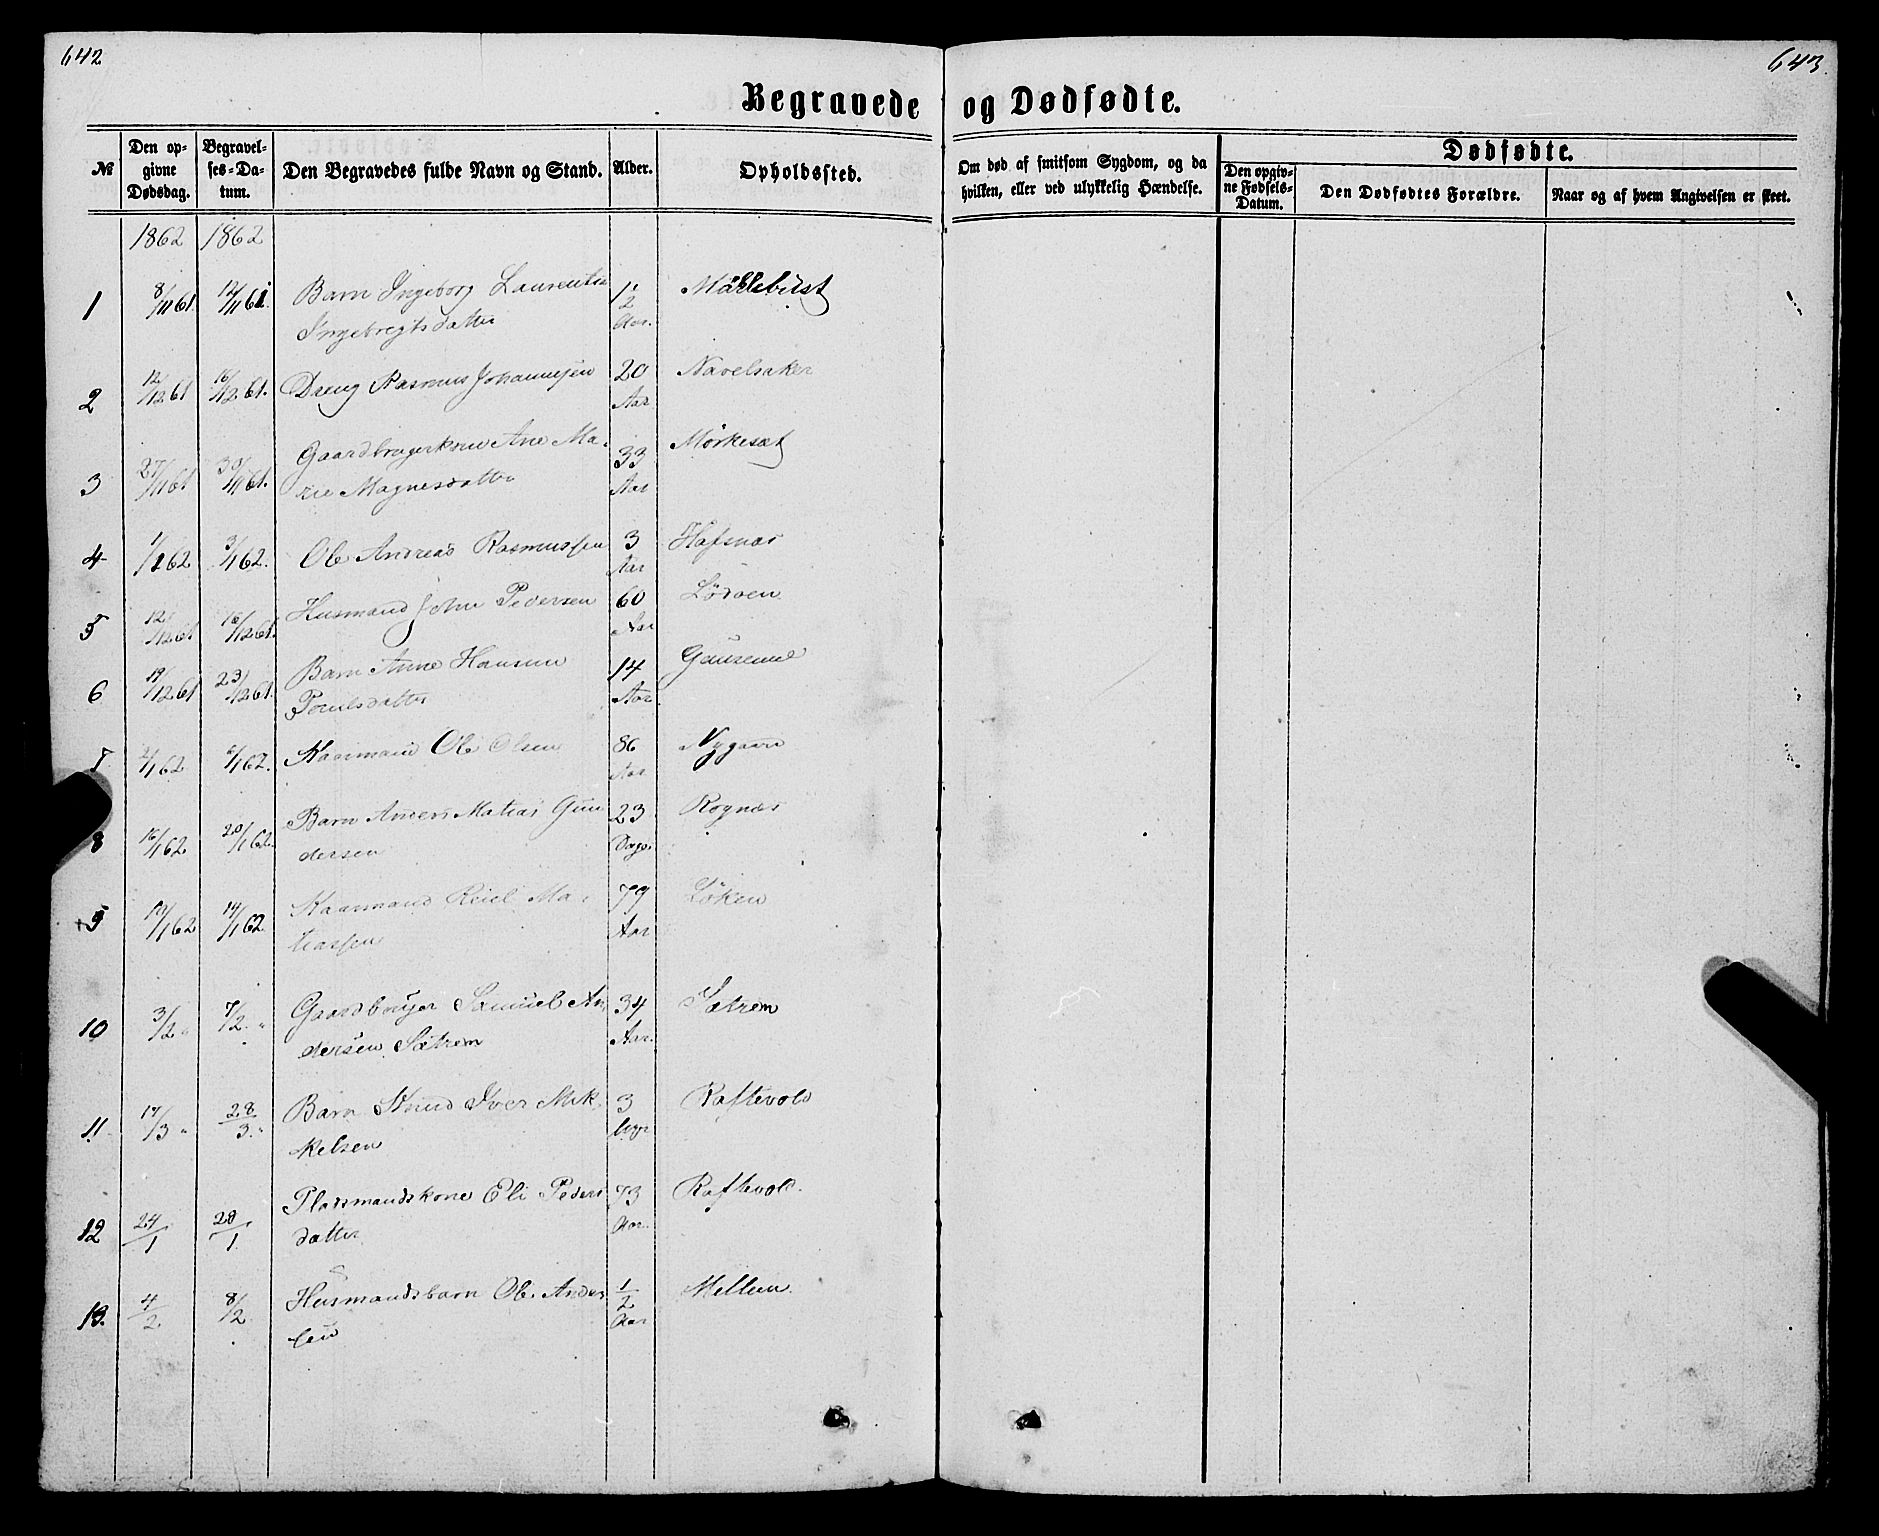 642
643.
Begravede og Dødfødte.
№
Den op-
givne
Dødsdag.
Begravel-
ses-Da-
tum.
Den Begravedes fulde Navn og Stand.
Alder.
Opholdssted.
Om død af smitsom Sygdom, og da
hvilken, eller ved ulykkelig Hændelse.
Dødfødte.
Den opgiv-
ne Fødsels-
Datum.
Den Dødfødtes Forældre.
Naar og af hvem Angivelsen er skeet.
1862 1862
1 8/11 61. 12/11 61. Barn Ingeborg Laurentse 1/2 Aar.
Ingebregtsdatter
2 12/12 61 16/12 61. Dreng Rasmus Johannesen 20 Aar Navelsaker
3 27/11 61 30/11 61. Gaardbrugerkone Ane Ma- 33 Aar
rie Magnesdatter
4 1/1 62 3/1 62. Ole Andreas Rasmussen 3 Aar Hafsnæs
5 12/12 61 16/12 61. Husmand John Pedersen 60 Aar Lødøen
6 19/12 61 23/12 61. Barn Anne 14 Aar
Poulsdatter
7 2/1 62 6/1 62. Kaarmand Ole Olsen 86 Aar Nygaard
8 16/1 62 20/1 62. Barn Anders Matias Gun 23 Dage. Rognæs
dersen
9 10/1 62 14/1 62. Kaarmand Reiel Ma- 79 Aar Løken
tiassen
10 3/2 " 7/2. " Gaardbruger Samuel An 34 Aar. Sætrem
dersen Sætrem
11. 17/3 " 28/3. " Barn Knud Iver Mik 3 Raftevold
kelsen
12 24/1 28/1. Pladsmandskone Eli Peders 73 Aar. Raftevold.
datter
13. 4/2 8/2 Husmandsbarn Ole Ander 1/2 Aar
sen